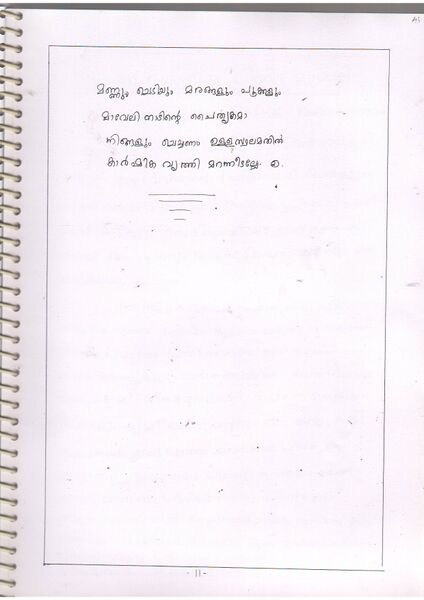 മണ്ണും ചെടിയും മരങ്ങളും പൂക്കളും
മാവേലി നാടിന്റെ പൈതൃകമാ
നിങ്ങളും ചെയ്യണം ഉള്ളസ്ഥലമതിൽ
കാർഷിക വൃത്തി മറന്നീടല്ലേ.
- 11 -